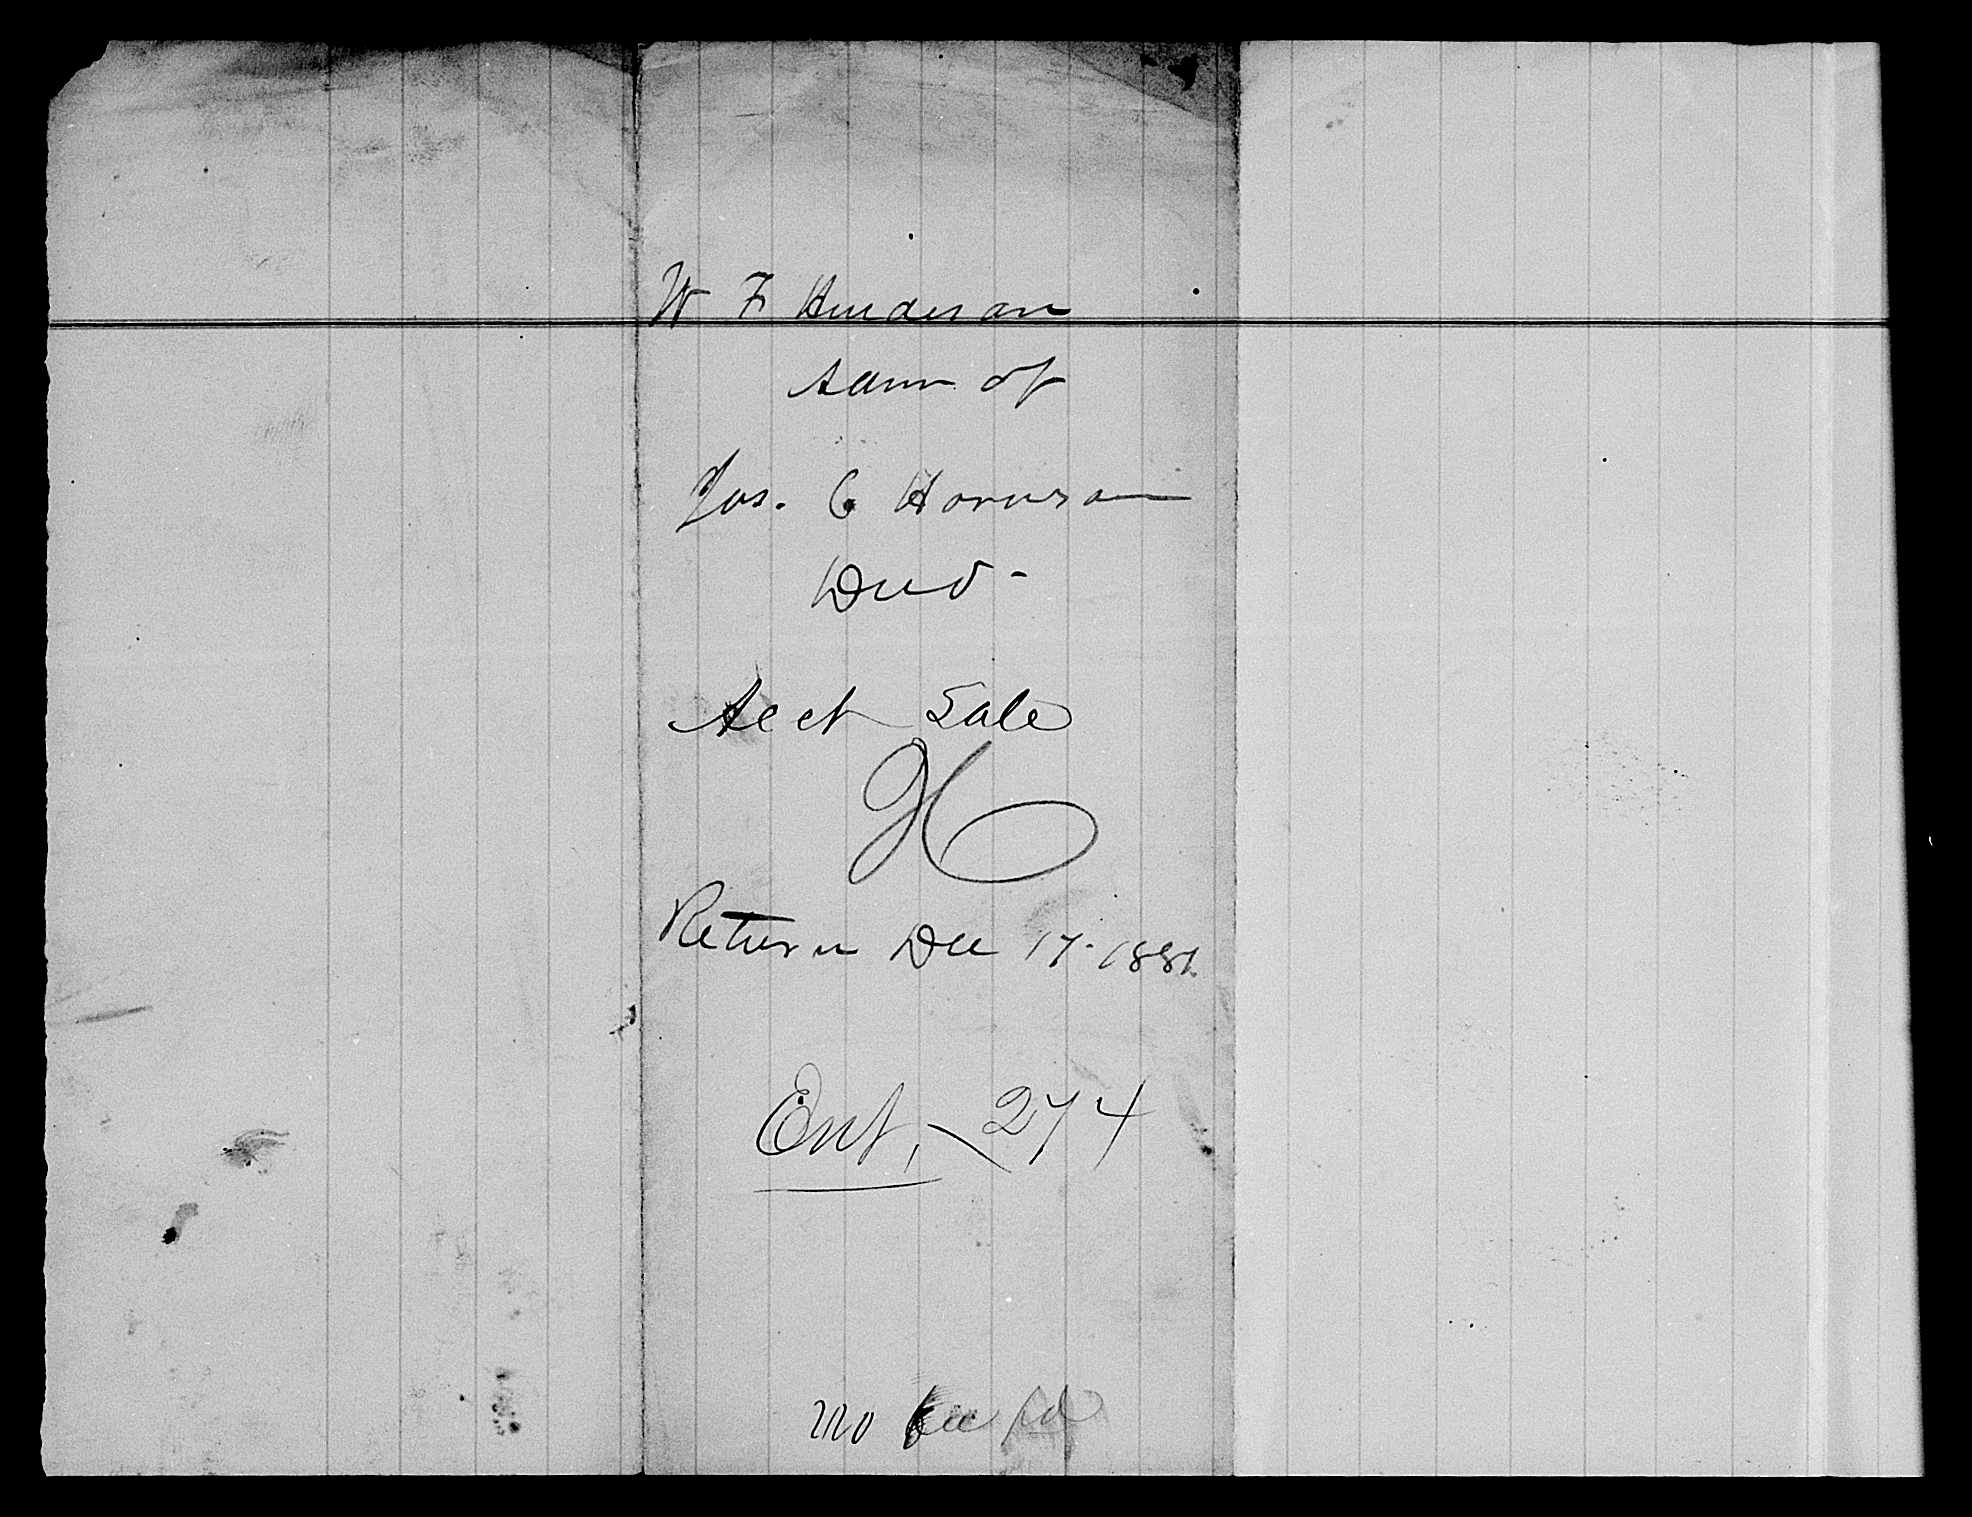 W F Henderson
Admr of
Jos. C Harrison
Decd -
Acct Sale
H
Return Dec 17. 1881.
Ent, - 274
no fee pd